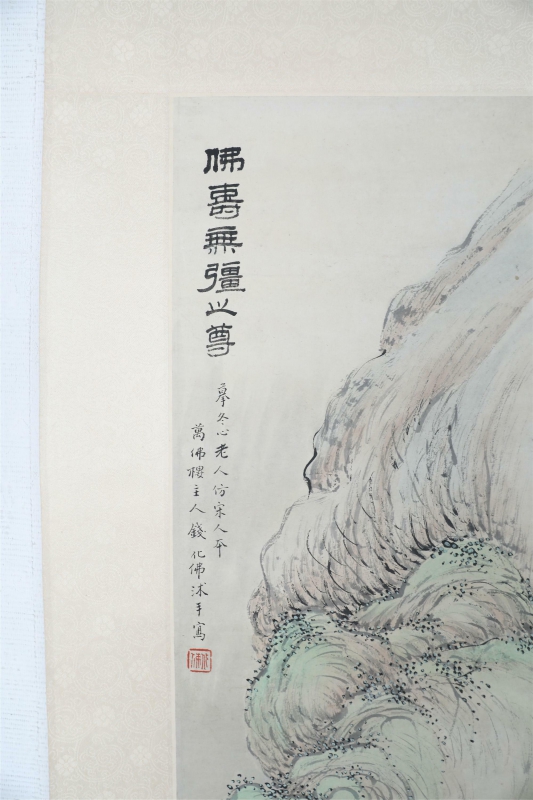 佛壽無彊之尊
摹冬心老人仿宋人本
萬佛樓主人錢化佛沐手寫
化佛